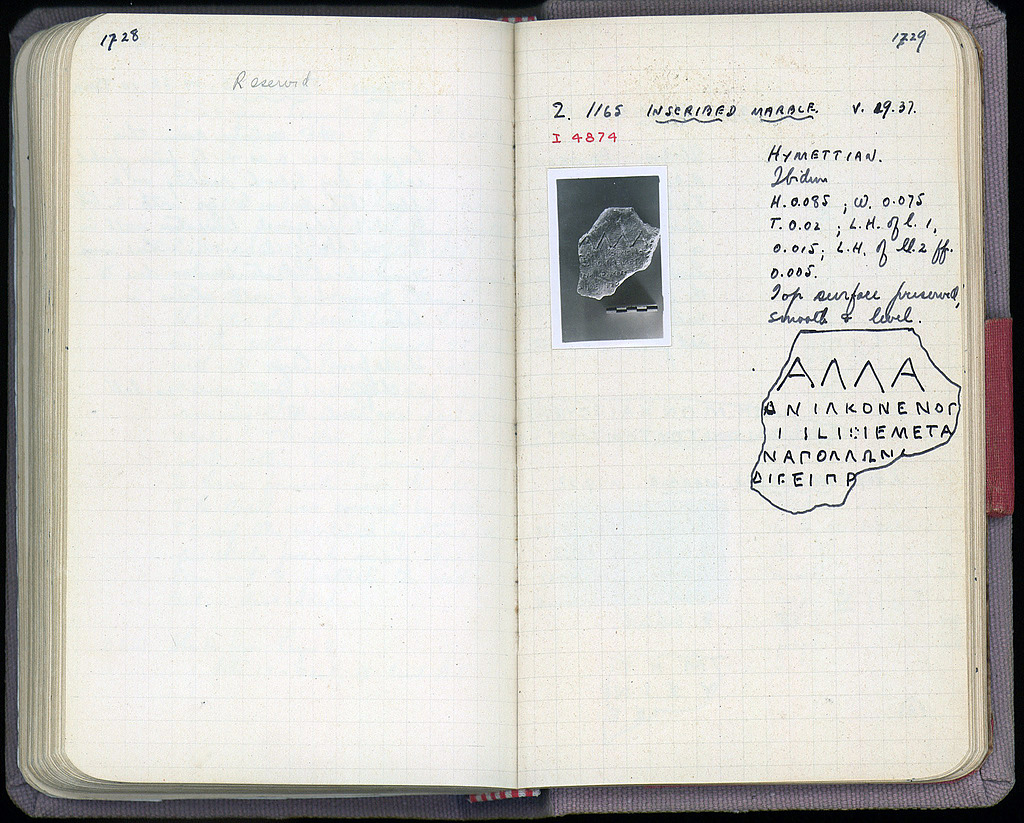 1728
Reserved
1729
2. 1165 INSCRIBED MARBLE. V. 29.37.
I 4874
HYMETTIAN.
Ibidem
H. 0.085 ; W. 0.075
T. 0.02 ; L.H. of l. 1,
0.015; L.H. of ll. 2 ff.
0.005.
Top surface preserved,
smooth & level.
ΑΛΛΑ
ΝΙΛΚΟΝΕΝΟΓ
ΙΕΜΕΤΑ
ΝΑΓΟΛΛΩΝ